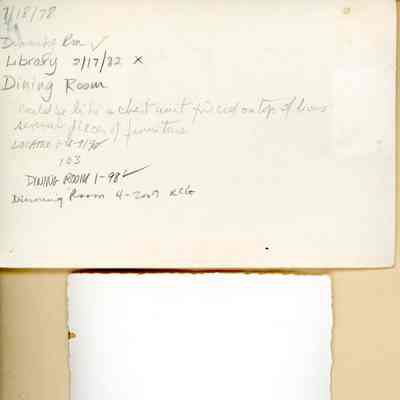 7/18/78
Dinning Rm ✓
Library 2/17/82 x
Dining Room
could be like a chest unit placed on top of
several pieces of furniture
LOCATED
103
DINING ROOM 1-98 ✓
Dinning Room 4-2007 KCG